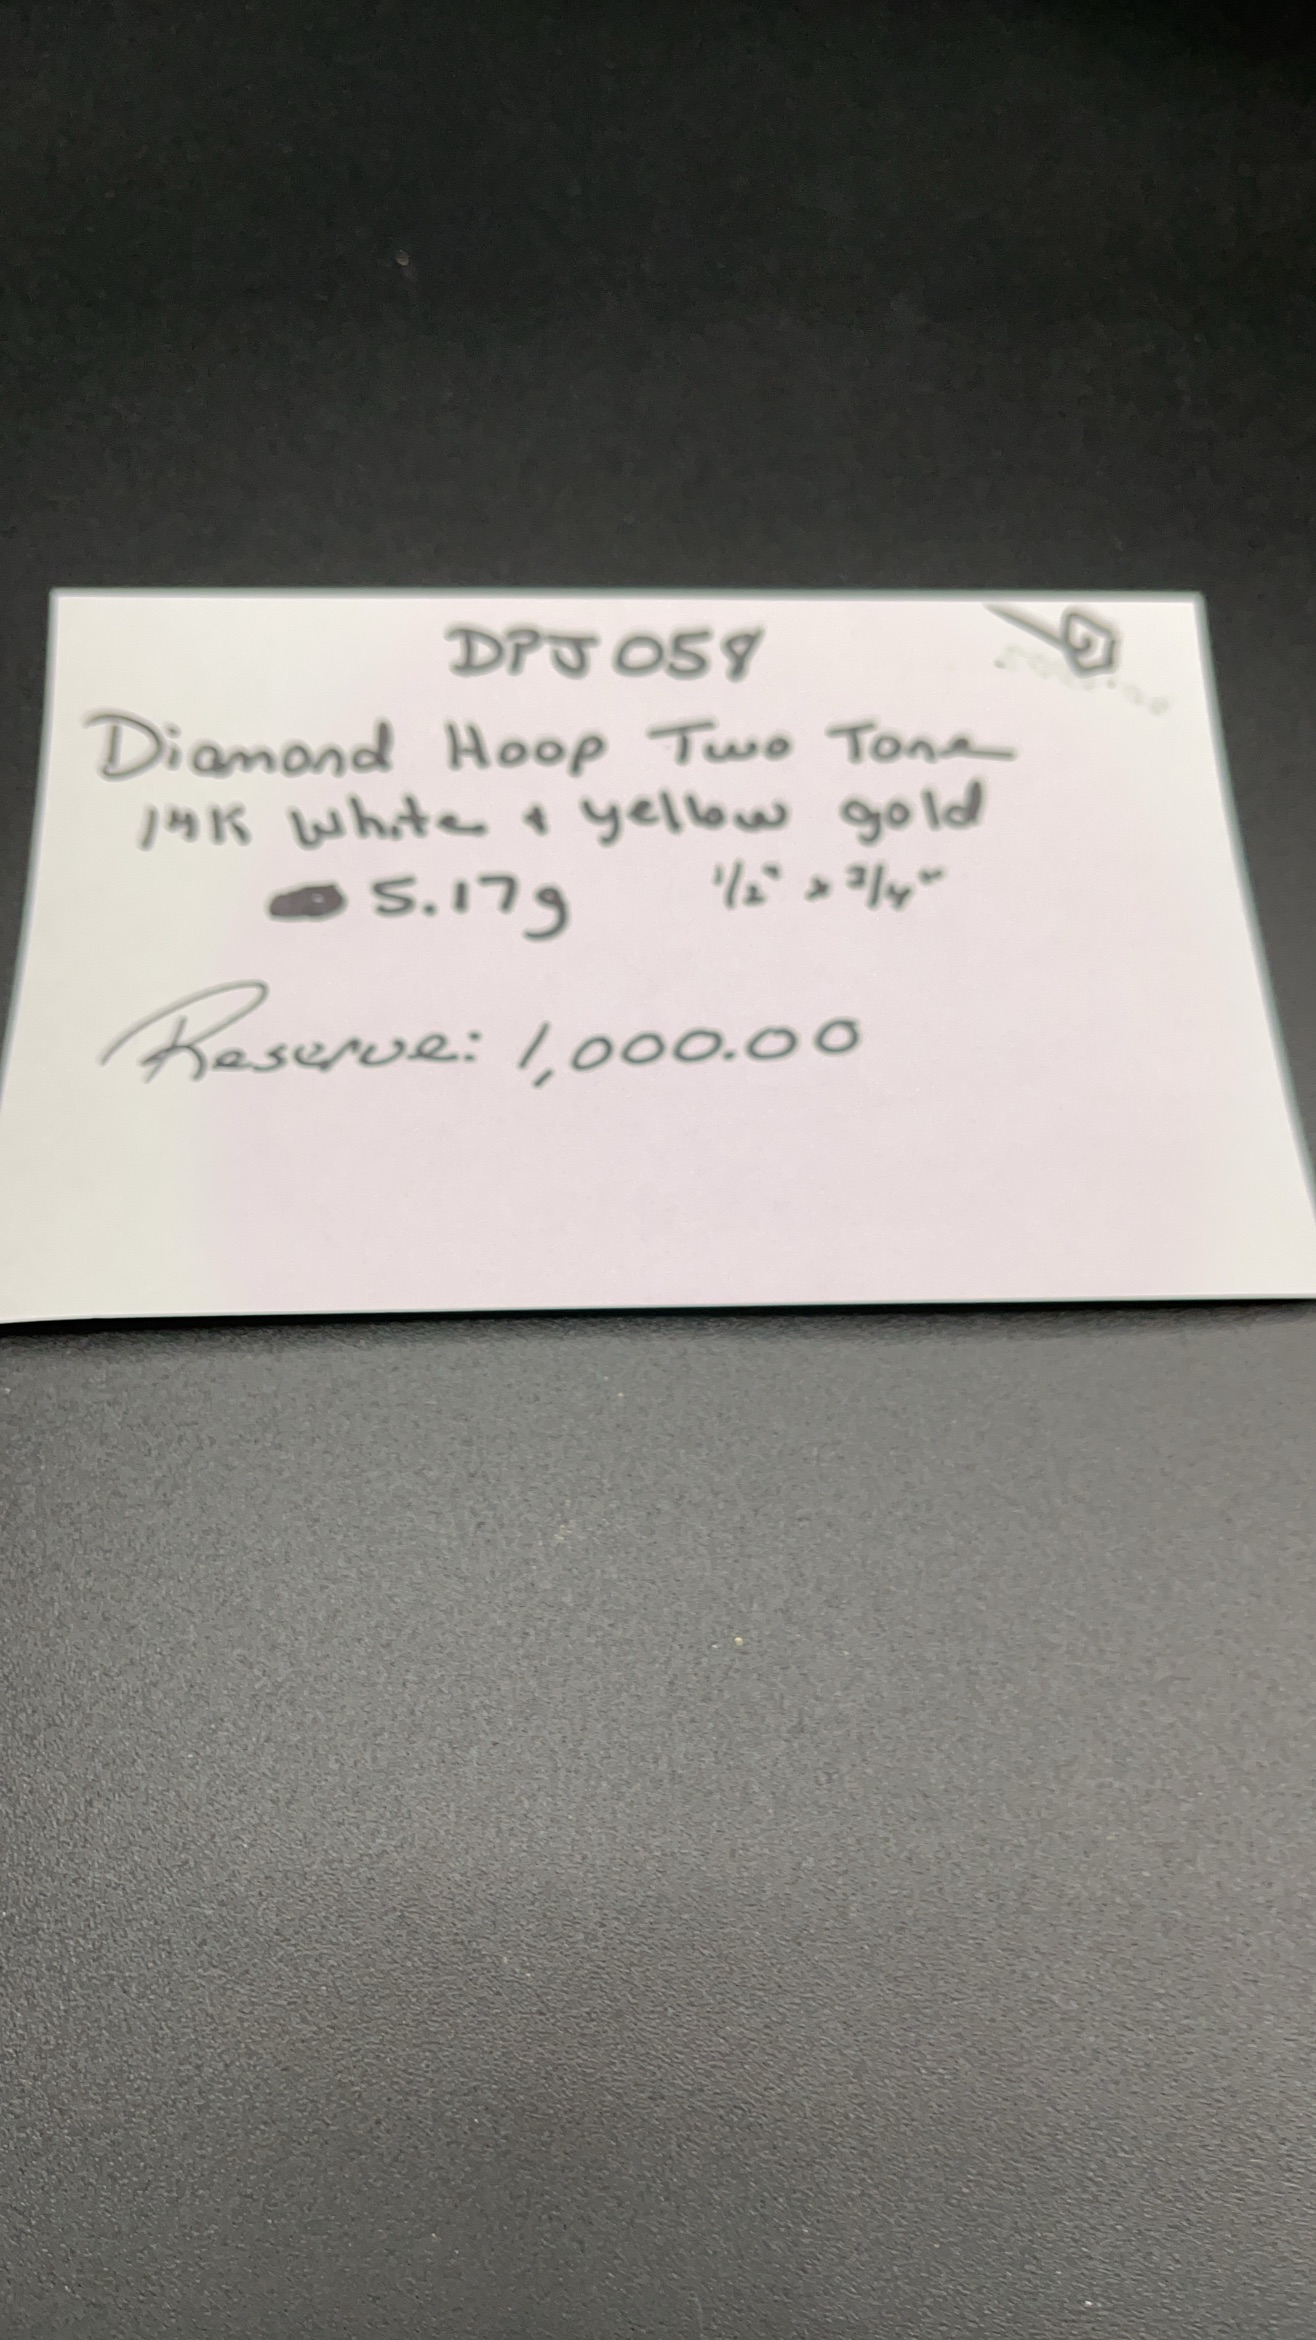 DPJ 058
Diamond Hoop Two Tone
14K White & yellow gold
5.17g 1/2" x 3/4"
Reserve: 1,000.00